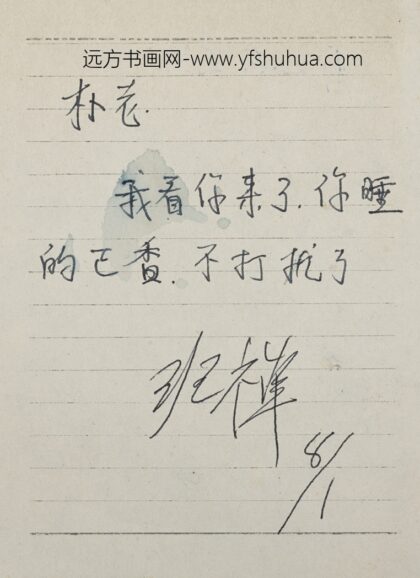 远方书画网-www.yfshuhua.com
朴花.
我看你来了.你睡
的已香.不打扰了
班禅
8/1